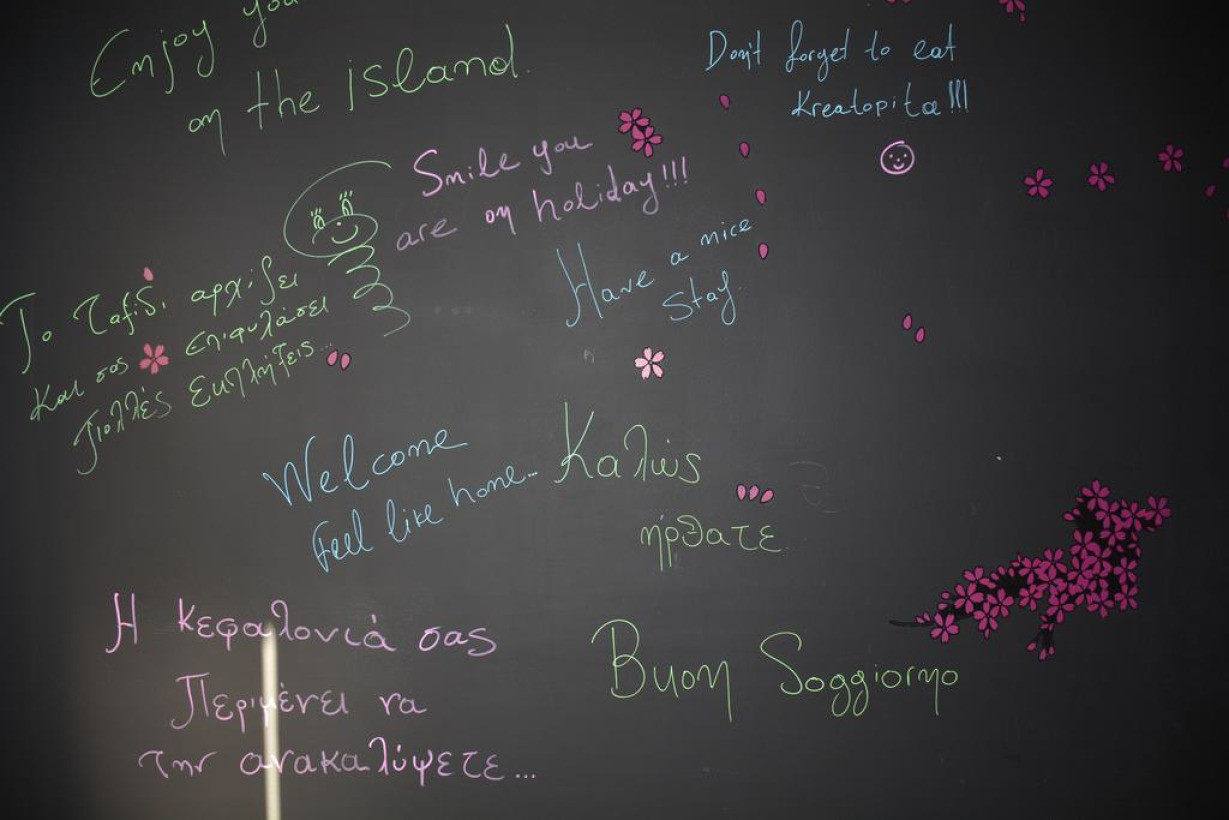 Enjoy you
on the island.
Don't forget to eat
Kreatopita!!!
Smile you
are on holiday!!!
Have a nice
stay.
Το ταξίδι αρχίζει
και σας επιφυλάσει
πολλές εκπλήξεις...
Welcome
feel like home...
Καλώς
ήρθατε.
Η κεφαλονιά σας
Περιμένει να
την ανακαλύψετε...
Buon Soggiorno